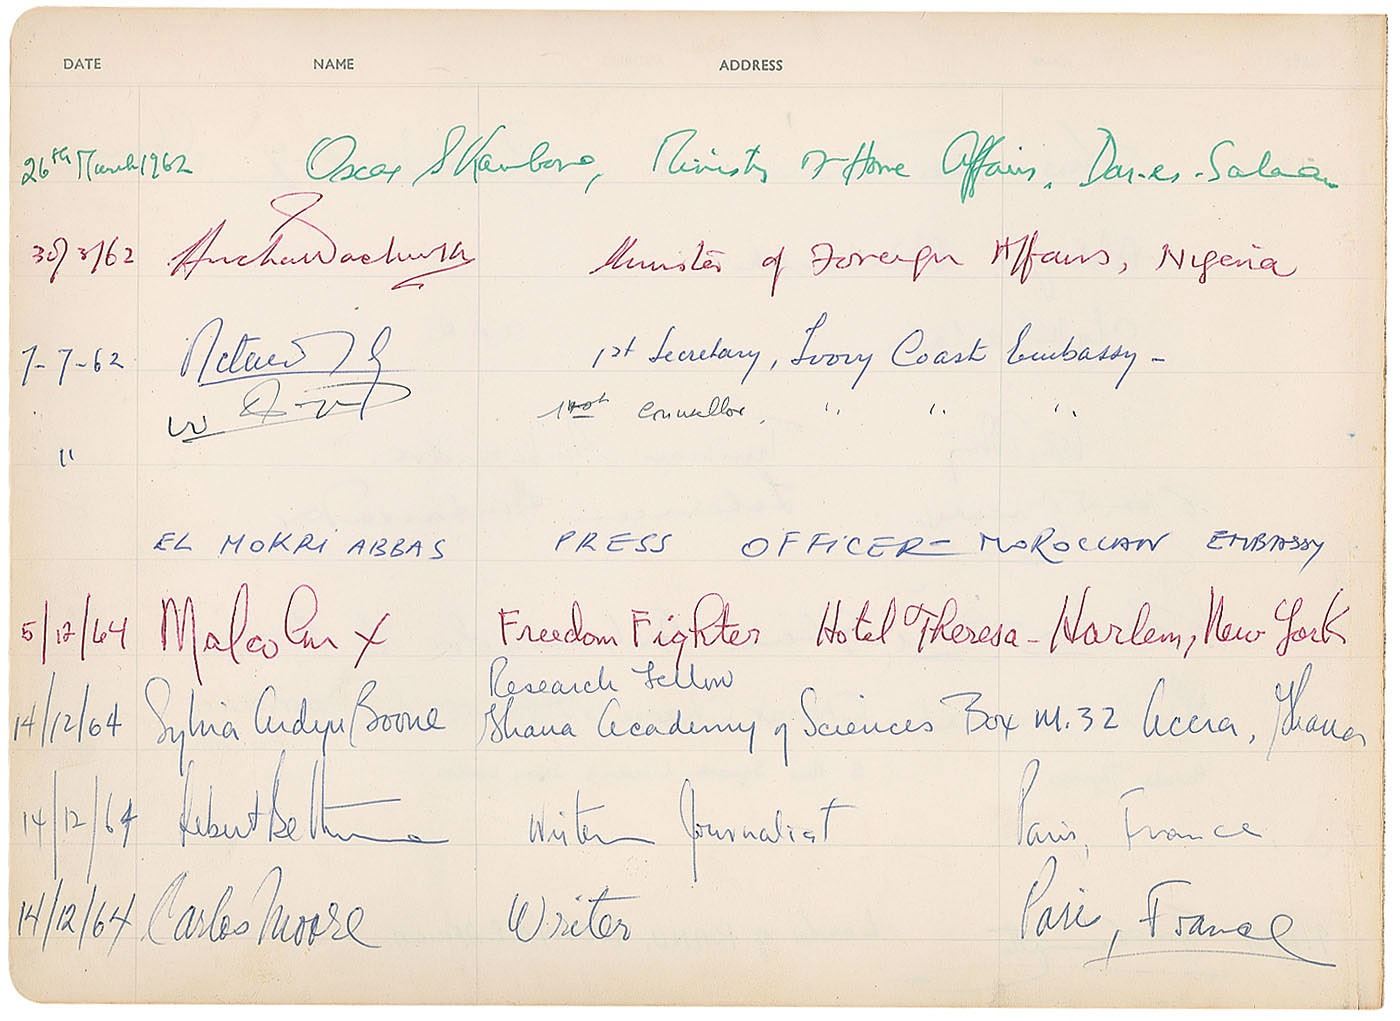 DATE NAME ADDRESS
26th March 1962 Oscar S Kambona, Ministry of Home Affairs, Dar-es-Salaam
30/3/62 Minister of Foreign Affairs, Nigeria
7-7-62 1st Secretary, Ivory Coast Embassy -
" Counsellor, " " "
"
EL MOKRI ABBAS PRESS OFFICER - MOROCCAN EMBASSY
5/12/64 Malcolm X Freedom Fighter Hotel Theresa - Harlem, New York
Research Fellow
14/12/64 Sylvia Ardyn Boone Ghana Academy of Sciences Box M.32 Accra, Ghana
14/12/64 Writer Journalist Paris, France
14/12/64 Carlos Moore Writer Paris, France